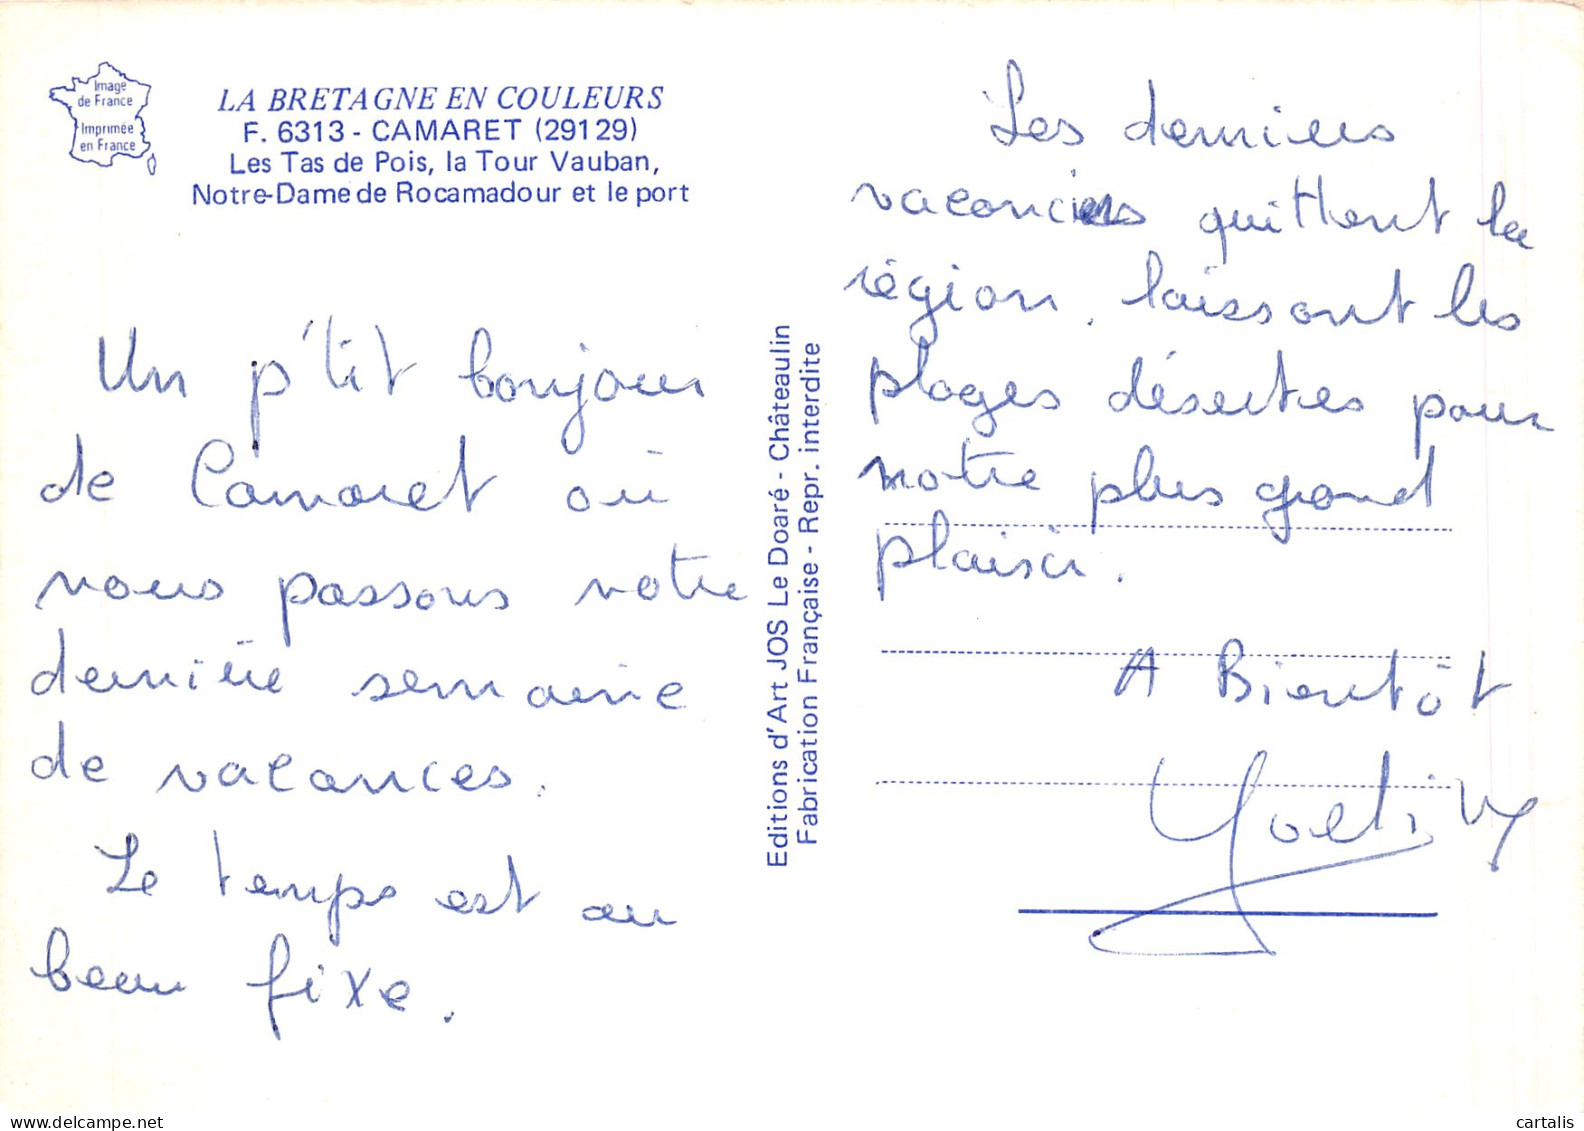 Image
de France
Imprimée
en France
LA BRETAGNE EN COULEURS
F. 6313 - CAMARET (29129)
Les Tas de Pois, la Tour Vauban,
Notre-Dame de Rocamadour et le port
Un p'tit bonjour
de Camaret où
nous passons notre
dernière semaine
de vacances.
Le temps est au
beau fixe.
Editions d'Art JOS Le Doaré - Châteaulin
Fabrication Française - Repr. interdite
Les derniers
vacanciers quittent la
région, laissant les
plages désertes pour
notre plus grand
plaisir.
A Bientôt
delcampe.net
cartalis